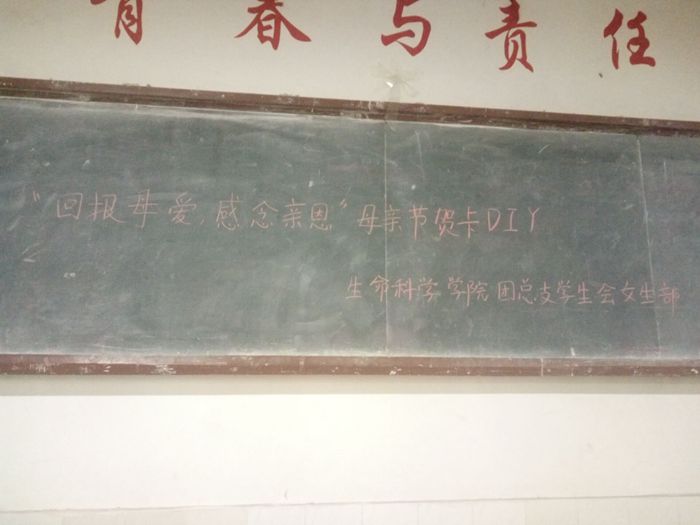 青春与责任
"回报母爱,感念亲恩"母亲节贺卡DIY
生命科学学院团总支学生会女生部